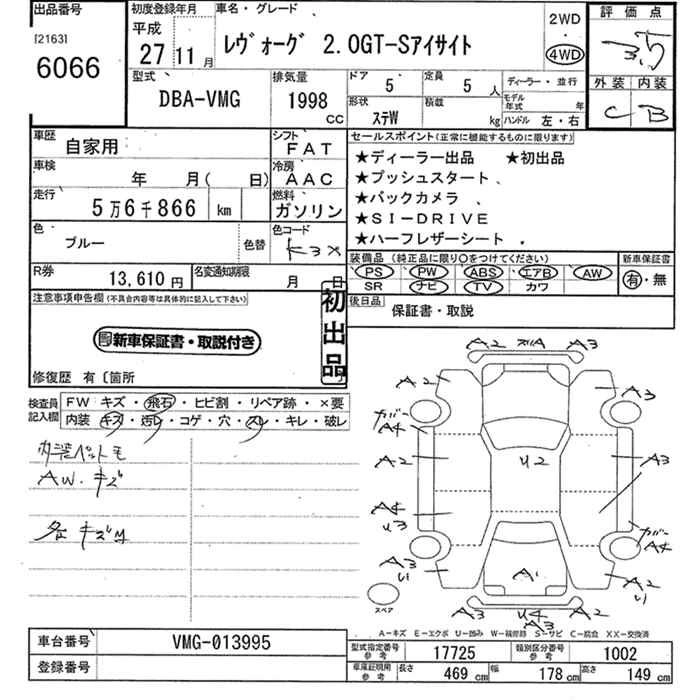 出品番号 初度登録年月 車名・グレード 2WD 評価点
[2163] 平成
6066 27 11月 レヴォーグ 2.0GT-Sアイサイト 4WD 3.5
型式 排気量 ドア 定員 ディーラー・並行 外装 内装
DBA-VMG 1998 CC 5 5人 モデル年式 年 C B
形状 ステW 積載 kg ハンドル 左・右
車歴 自家用 シフト FAT セールスポイント(正常に機能するものに限ります)
車検 年 月( 日) 冷房 AAC ★ディーラー出品 ★初出品
走行 5万6千866 km 燃料 ガソリン ★プッシュスタート
★バックカメラ
★SI-DRIVE
★ハーフレザーシート
色 ブルー 色替 色コード K3X
装備品(純正品に限り○をつけてください) 新車保証書
PS PW ABS エアB AW 有・無
SR ナビ TV カワ
R券 13,610円 名変通知期限 月 日
注意事項申告欄(不具合内容等は具体的に記入して下さい) 初出品 後日品 保証書・取説
新車保証書・取説付き
修復歴 有 〔箇所 〕
検査員記入欄 FW キズ・飛石・ヒビ割・リペア跡・×要
内装 キズ・汚レ・コゲ・穴・スレ・キレ・破レ
内装ペットモ
AW.キズ
各キズM
A2 A3
A2 A3
カバー
A4
A2 U2 A3
A4
U3 カバー
A4
A3 A1 A2
U U
A3 U4 A2
A3
スペア
A-キズ E-エクボ U-凹み W-補修跡 S-サビ C-腐食 XX-交換済
車台番号 VMG-013995 型式指定番号 参考 17725 類別区分番号 参考 1002
登録番号 車庫証明用 参考 長さ 469 cm 幅 178 cm 高さ 149 cm